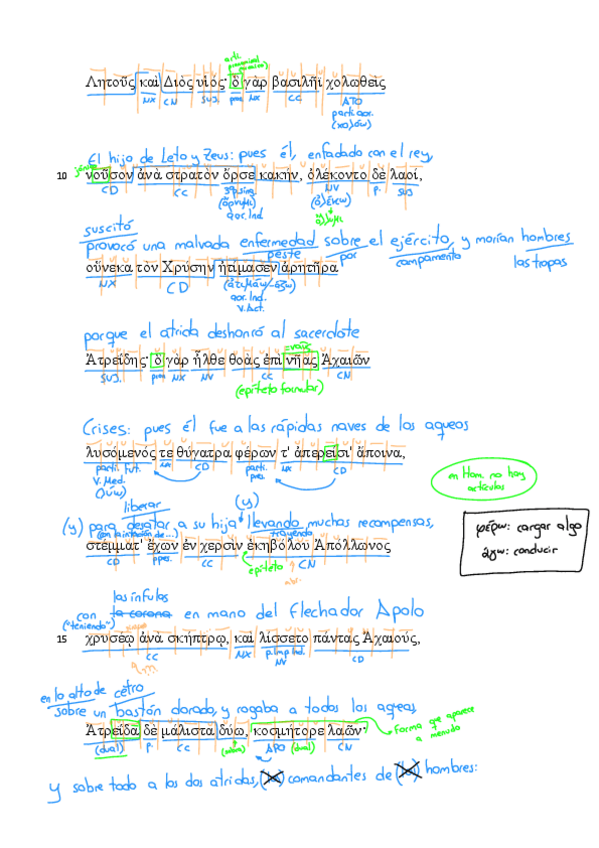 arti.
pronominal
Λητοῦς καὶ Διὸς υἱός· ὃ γὰρ βασιλῆϊ χολωθεὶς
NX CN SUJ. pron. NX CC ATO
parti. aor.
(χολόω)
El hijo de Leto y Zeus: pues él, enfadado con el rey,
10 νοῦσον ἀνὰ στρατὸν ὄρσε κακήν, ὀλέκοντο δὲ λαοί,
CD CC 3ªp.sing. NV P. SUJ
(ὄρνυμι) (ὀλέκω)
aor. Ind.
suscitó
provocó una malvada enfermedad sobre el ejército, y morían hombres
peste por campamento las tropas
οὕνεκα τὸν Χρύσην ἠτίμασεν ἀρητῆρα
NX CD
aor. Ind.
V. Act.
porque el atrida deshonró al sacerdote
=ναῦς
Ἀτρεΐδης· ὃ γὰρ ἦλθε θοὰς ἐπὶ νῆας Ἀχαιῶν
SUJ. pron NX NV CC CN
(epíteto formular)
Crises: pues él fue a las rápidas naves de los aqueos
λυσόμενός τε θύγατρα φέρων τ' ἀπερείσι' ἄποινα,
parti. Fut. NX CD parti. pres. NX CD
V. Med.
(λύω)
en Hom. no hay
artículos
liberar (y)
(y) para desatar a su hija llevando muchas recompensas,
(con la intención de...) trayendo
φέρω: cargar algo
ἄγω: conducir
στέμματ' ἔχων ἐν χερσὶν ἑκηβόλου Ἀπόλλωνος
CD ppres. CC epíteto CN
las ínfulas
con la corona en mano del flechador Apolo
("teniendo")
15 χρυσέῳ ἀνὰ σκήπτρῳ, καὶ λίσσετο πάντας Ἀχαιούς,
CC NX p.Imp Ind. CD
NV
en lo alto de cetro
sobre un bastón dorado, y rogaba a todos los aqueos
Ἀτρεΐδα δὲ μάλιστα δύω, κοσμήτορε λαῶν·
(dual) P. CC APO (dual) CN
Forma que aparece
a menudo
y sobre todo a los dos atridas, comandantes de hombres: